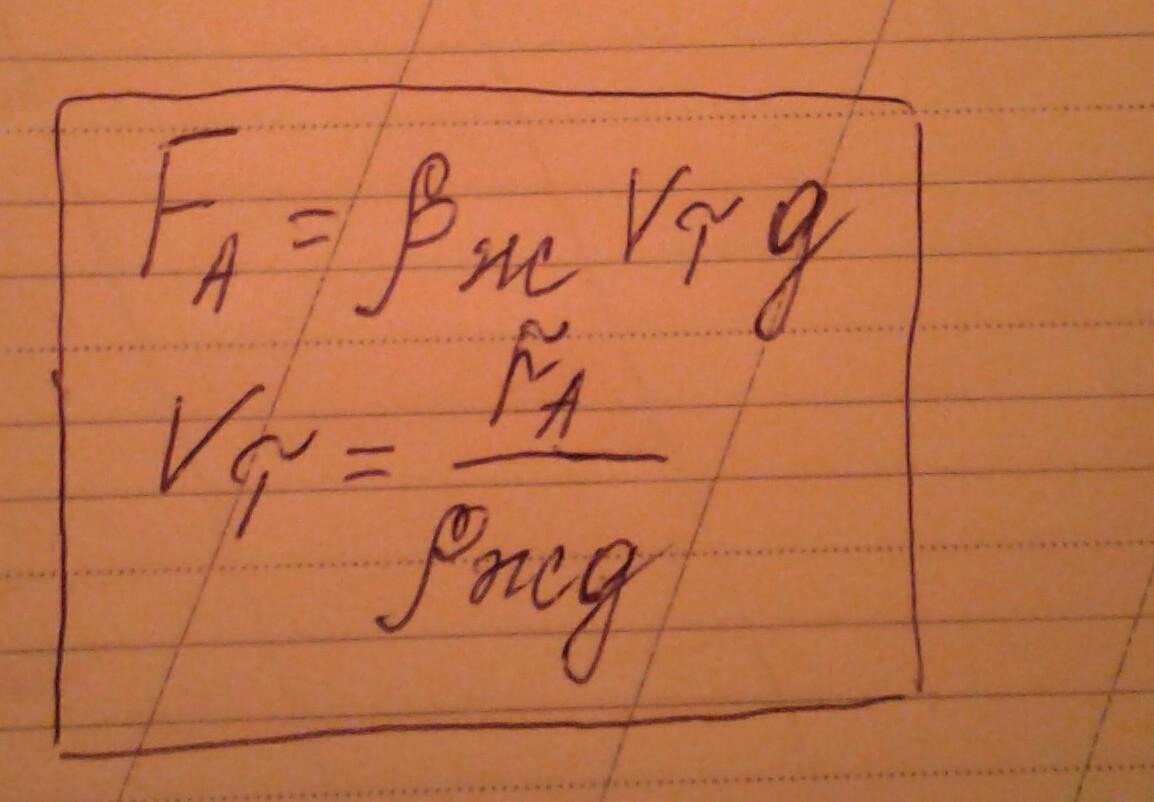 F_A = ρ_ж V_T g
V_T = F_A / ρ_ж g